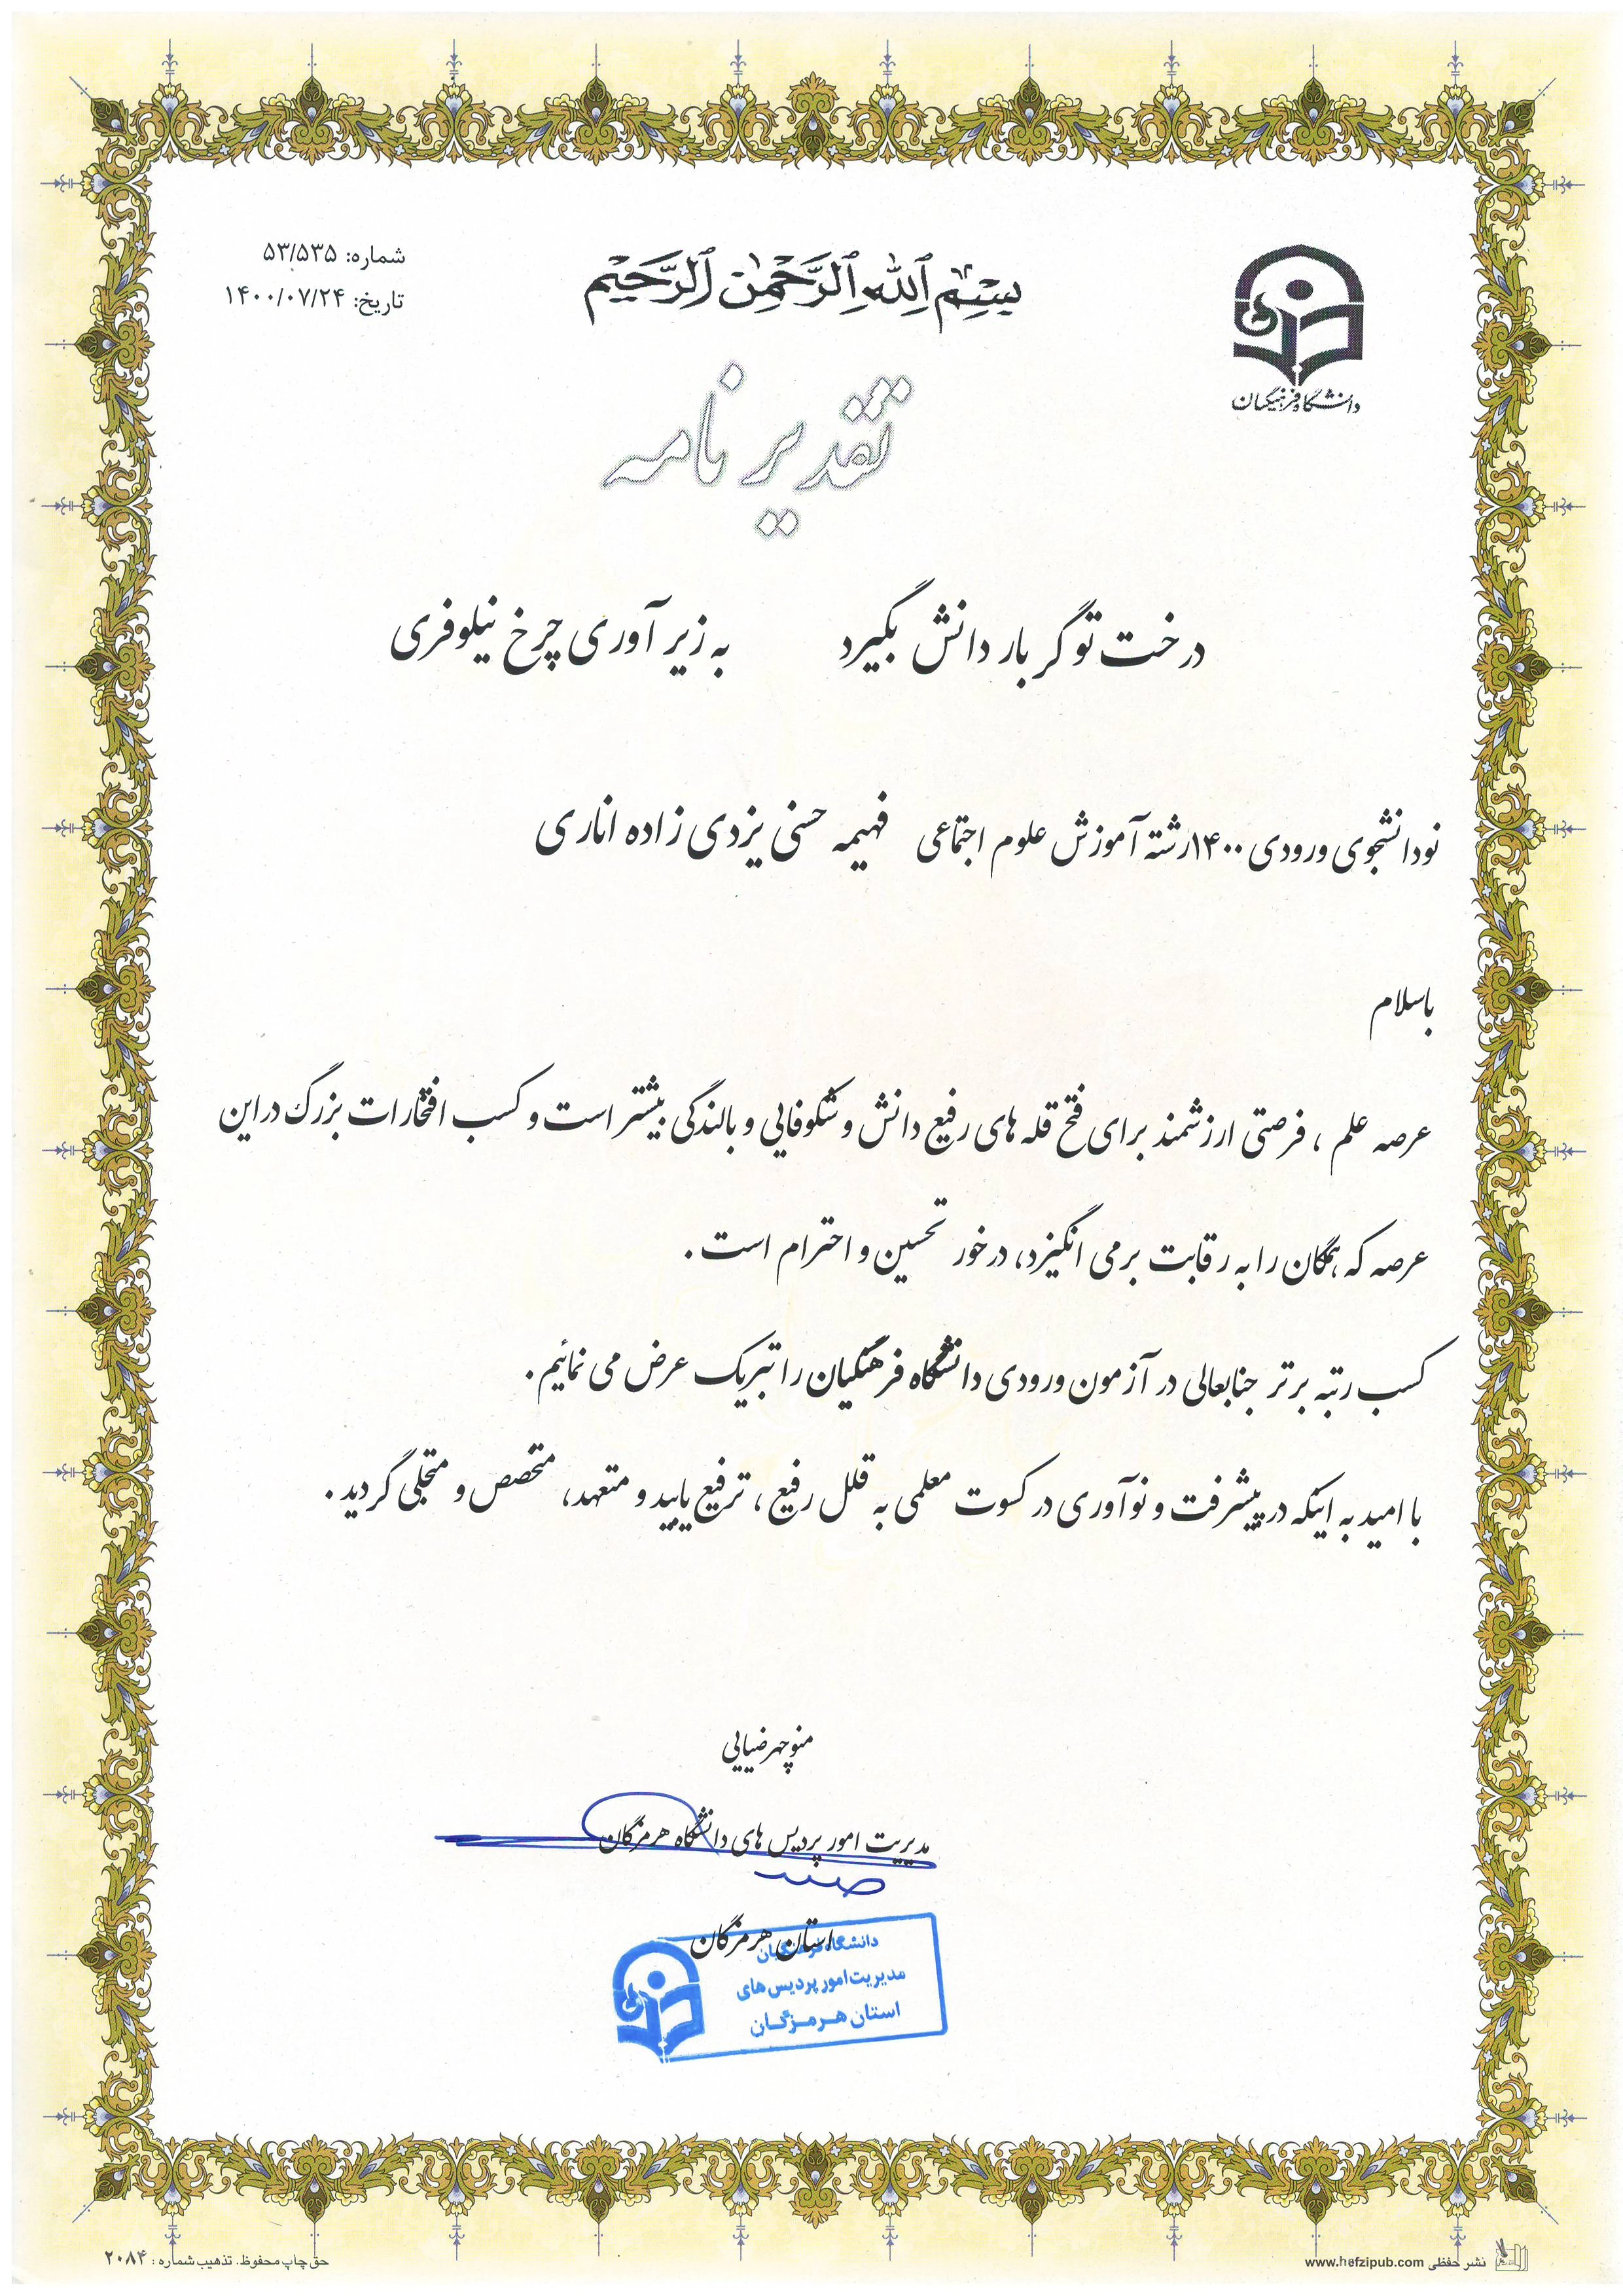 بسم الله الرحمن الرحیم
دانشگاه فرهنگیان
شماره: ۵۳/۵۳۵
تاریخ: ۱۴۰۰/۰۷/۲۴
تقدیرنامه
درخت تو گر بار دانش بگیرد به زیر آوری چرخ نیلوفری
نودانشجوی ورودی ۱۴۰۰رشته آموزش علوم اجتماعی فهیمه حسنی یزدی زاده اناری
باسلام
عرصه علم ، فرصتی ارزشمند برای فتح قله های رفیع دانش و شکوفایی و بالندگی بیشتر است و کسب افتخارات بزرگ دراین
عرصه که همگان را به رقابت برمی انگیزد، درخور تحسین و احترام است .
کسب رتبه برتر جنابعالی در آزمون ورودی دانشگاه فرهنگیان را تبریک عرض می نمائیم .
با امید به اینکه در پیشرفت و نوآوری در کسوت معلمی به قلل رفیع ، ترفیع یابید و متعهد، متخصص و متجلی گردید .
منوچهر ضیایی
مدیریت امور پردیس های دانشگاه هرمزگان
استان هرمزگان
دانشگاه فرهنگیان
مدیریت امور پردیس های
استان هرمزگان
حق چاپ محفوظ. تذهیب شماره : ۲۰۸۴
نشر حفظی www.hefzipub.com